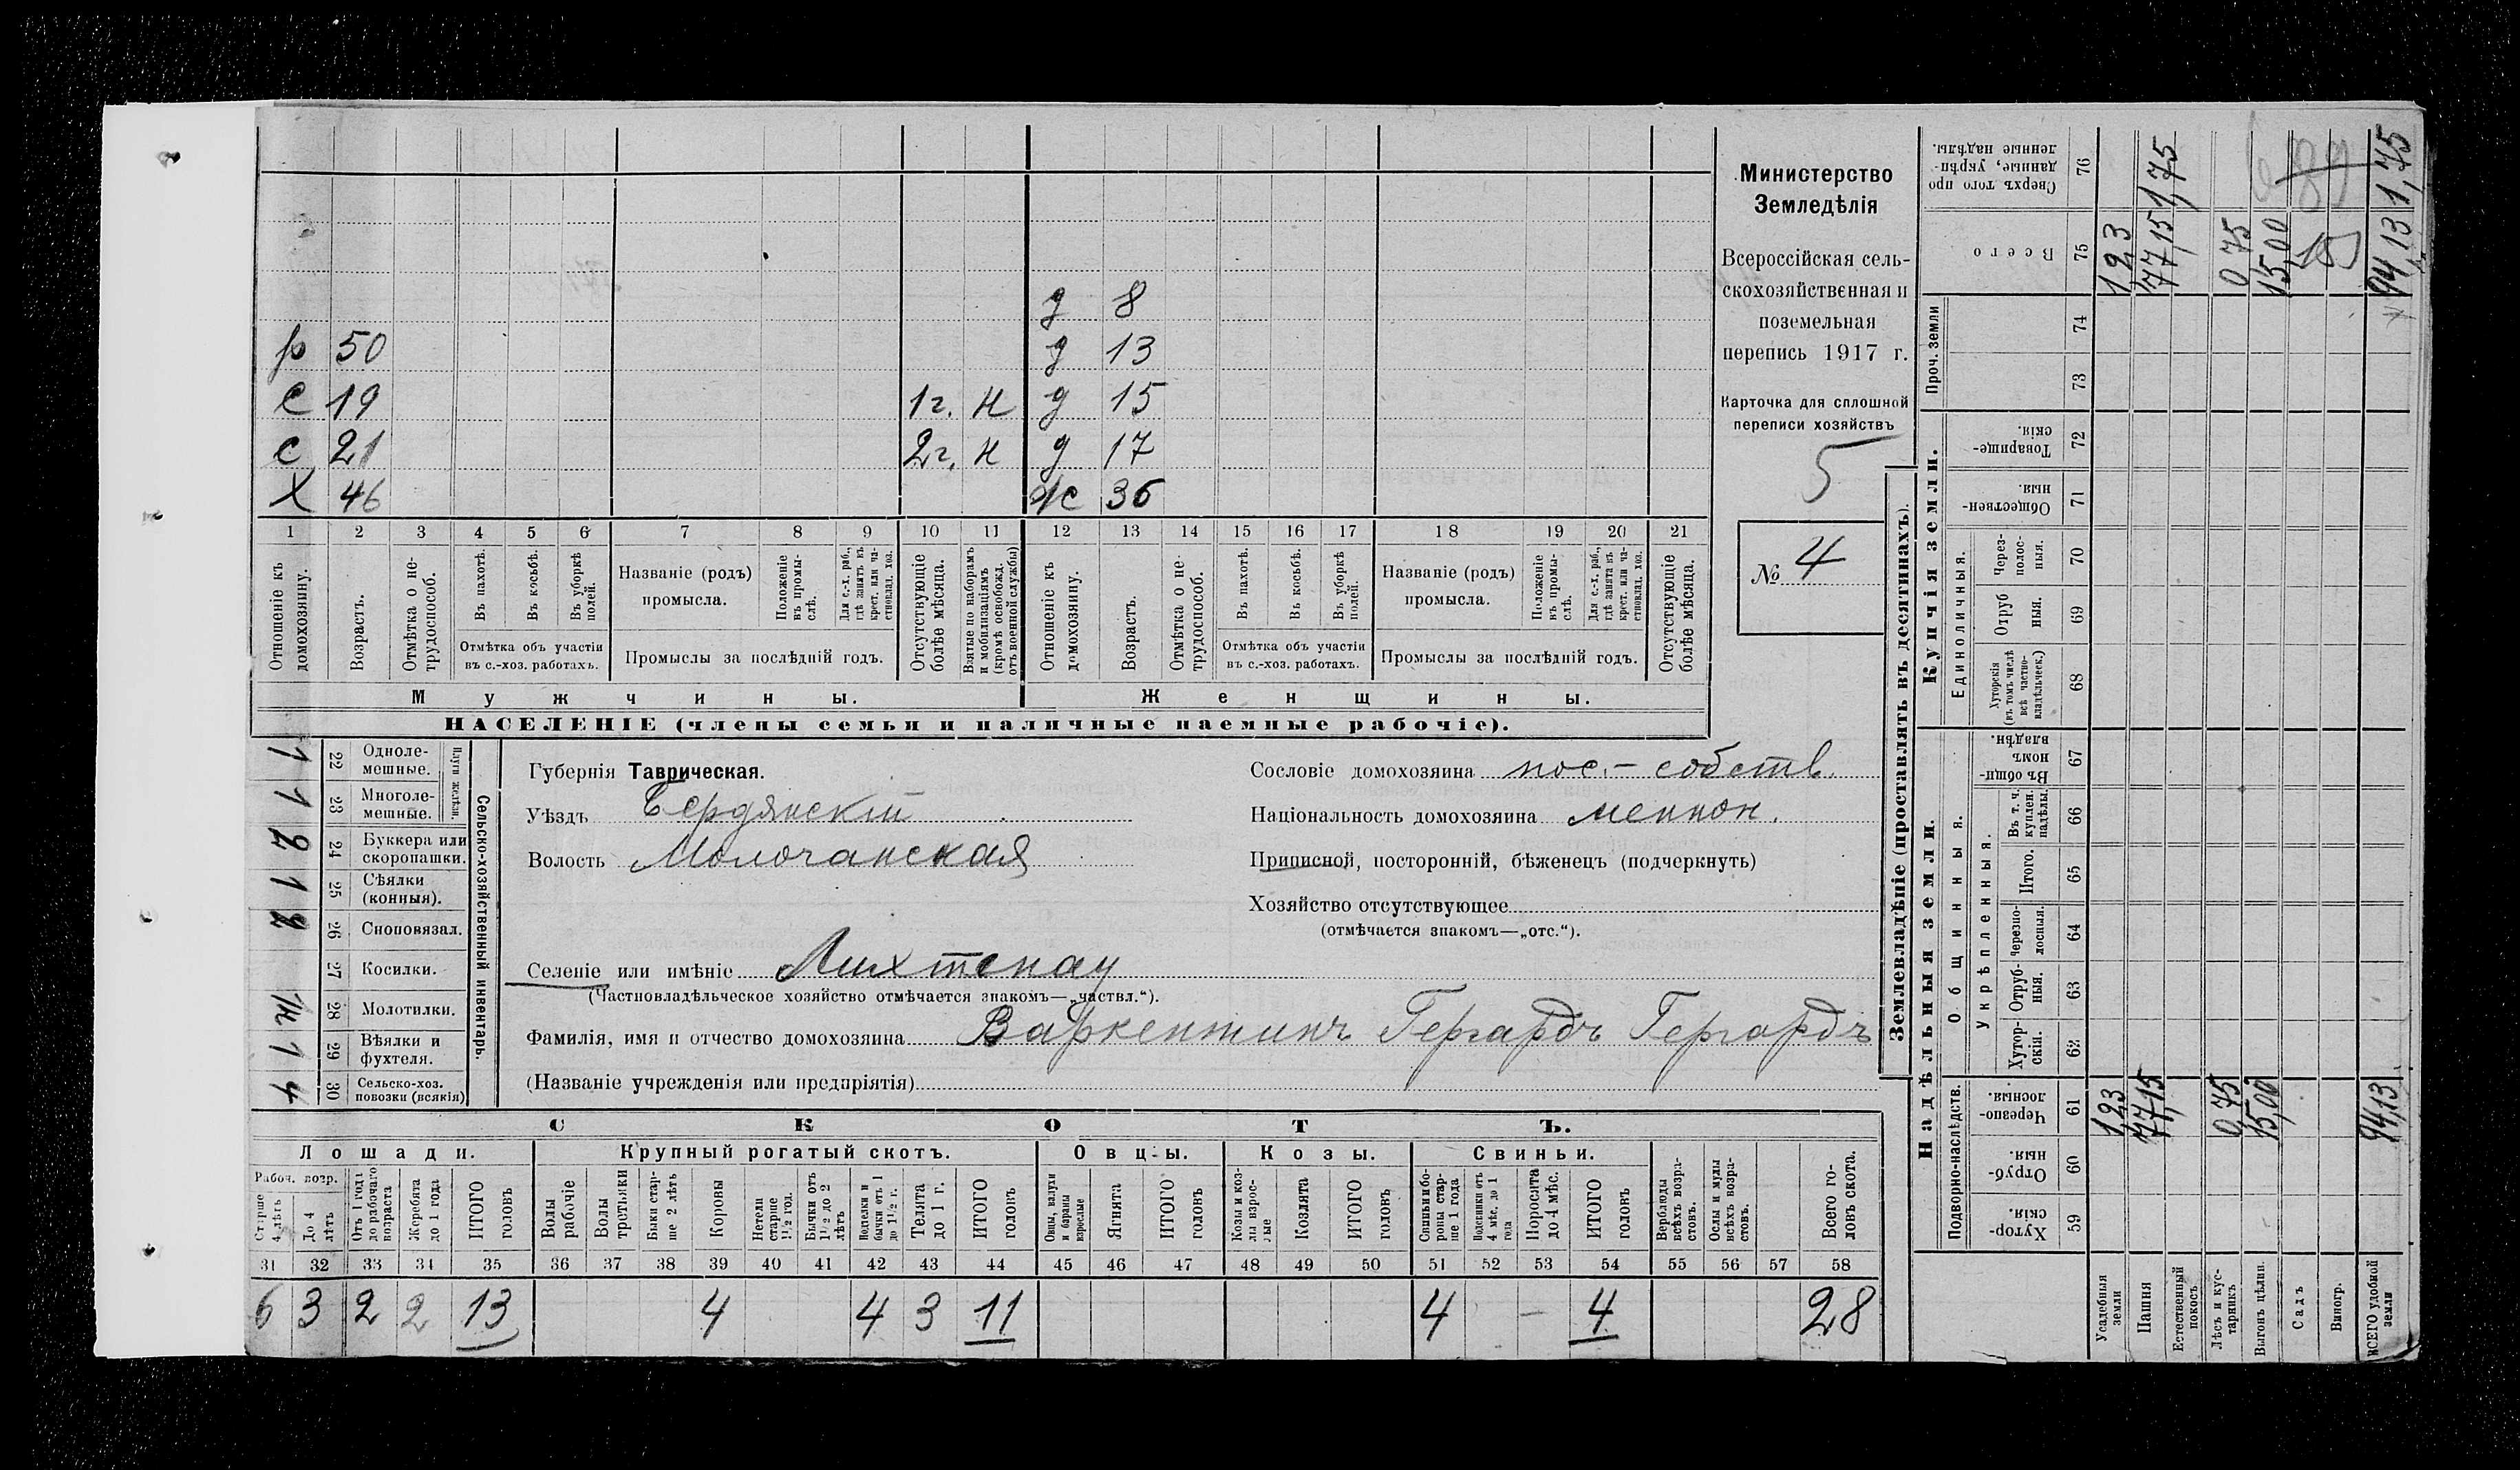 Министерство
Земледѣлія
Всероссійская сель-
скохозяйственная и
поземельная
перепись 1917 г.
Карточка для сплошной
переписи хозяйствъ
5
№ 4
д 8
р 50 д 13
с 19 1г. н д 15
с 21 2г. н д 17
х 46 ж 36
1 2 3 4 5 6 7 8 9 10 11 12 13 14 15 16 17 18 19 20 21
Отношеніе къ домохозяину.
Возрастъ.
Отмѣтка о не-трудоспособ.
Въ пахотѣ.
Въ косьбѣ.
Въ уборкѣ полей.
Отмѣтка объ участіи
въ с.-хоз. работахъ.
Названіе (родъ)
промысла.
Положеніе въ промы-слѣ.
Для с.-х. раб., гдѣ занятъ къ крест. или ча-стновлад. хоз.
Промыслы за послѣдній годъ.
Отсутствующіе болѣе мѣсяца.
Взятые по наборамъ и мобилизаціямъ (кромѣ освобожд. отъ военной службы)
Отношеніе къ домохозяину.
Возрастъ.
Отмѣтка о не-трудоспособ.
Въ пахотѣ.
Въ косьбѣ.
Въ уборкѣ полей.
Отмѣтка объ участіи
въ с.-хоз. работахъ.
Названіе (родъ)
промысла.
Положеніе въ промы-слѣ.
Для с.-х. раб., гдѣ занята въ крест. или ча-стновлад. хоз.
Промыслы за послѣдній годъ.
Отсутствующіе болѣе мѣсяца.
Мужчины.
Женщины.
НАСЕЛЕНІЕ (члены семьи и наличные наемные рабочіе).
Сельско-хозяйственный инвентарь.
Плуги желѣзн.
1 22 Одноле-мешные.
1 23 Многоле-мешные.
2 24 Буккера или скоропашки.
1 25 Сѣялки (конныя).
26 Сноповязал.
27 Косилки.
28 Молотилки.
1 29 Вѣялки и фухтеля.
4 30 Сельско-хоз. повозки (всякія)
Губернія Таврическая.
Уѣздъ Бердянскій
Волость Молочанская
Селеніе или имѣніе Лихтенау
(Частновладѣльческое хозяйство отмѣчается знакомъ—„частвл.“).
Фамилія, имя и отчество домохозяина Варкентинъ Гергардъ Гергардъ
(Названіе учрежденія или предпріятія)
Сословіе домохозяина пос.- собств.
Національность домохозяина меннон.
Приписной, посторонній, бѣженецъ (подчеркнуть)
Хозяйство отсутствующее
(отмѣчается знакомъ—„отс.“).
СКОТЪ.
Лошади.
Крупный рогатый скотъ.
Овцы.
Козы.
Свиньи.
Рабоч. возр.
Старше 4 лѣтъ
До 4 лѣтъ
Отъ 1 года до рабочаго возраста
Жеребята до 1 года
ИТОГО головъ
Волы рабочіе
Волы третьяки
Быки стар-ше 2 лѣтъ
Коровы
Нетели старше 1½ год.
Бычки отъ 1½ до 2 лѣтъ
бычки отъ 1 до 1½ г.
Телята до 1 г.
ИТОГО головъ
Овцы, валухи и бараны взрослые
Ягнята
ИТОГО головъ
Козы и коз-лы взрос-лые
Козлята
ИТОГО головъ
Свиньи бо-ровы стар-ше 1 года
Подсвинки отъ 4 мѣс. до 1 года
Поросята до 4 мѣс.
ИТОГО головъ
Верблюды всѣхъ возра-стовъ.
Ослы и мулы всѣхъ возра-стовъ.
Всего го-ловъ скота.
31 32 33 34 35 36 37 38 39 40 41 42 43 44 45 46 47 48 49 50 51 52 53 54 55 56 57 58
6 3 2 2 13 4 4 3 11 4 — 4 28
Землевладѣніе (проставлять въ десятинахъ).
Надѣльныя земли.
Купчія земли.
Проч. земли
Подворно-наслѣдств.
Общинныя.
Укрѣпленныя.
Единоличныя.
Сверхъ того про данные, укрѣп-ленные надѣлы. 76
Всего 75
74
73
Товарище-скія. 72
Обществен-ныя. 71
Через-полос-ныя. 70
Отруб ныя. 69
Хуторскія (въ томъ числѣ всѣ частно-владѣльческ.) 68
Въ общи-номъ владѣн. 67
Въ т. ч. куплен. надѣлы. 66
Итого. 65
Черезпо-лосныя. 64
Отруб-ныя. 63
Хутор-скія. 62
Черезпо-лосныя. 61
Отруб-ныя. 60
Хутор-скія. 59
Усадебныя земли 1,23 1,23
Пашня 77,15 77,15 1,75
Естественный покосъ
Лѣсъ и кус-тарникъ 0,75 0,75
Выгонъ цѣлин. 15,00 15,00
Садъ
Виногр.
15
ВСЕГО удобной земли 94,13 94,13 1,75